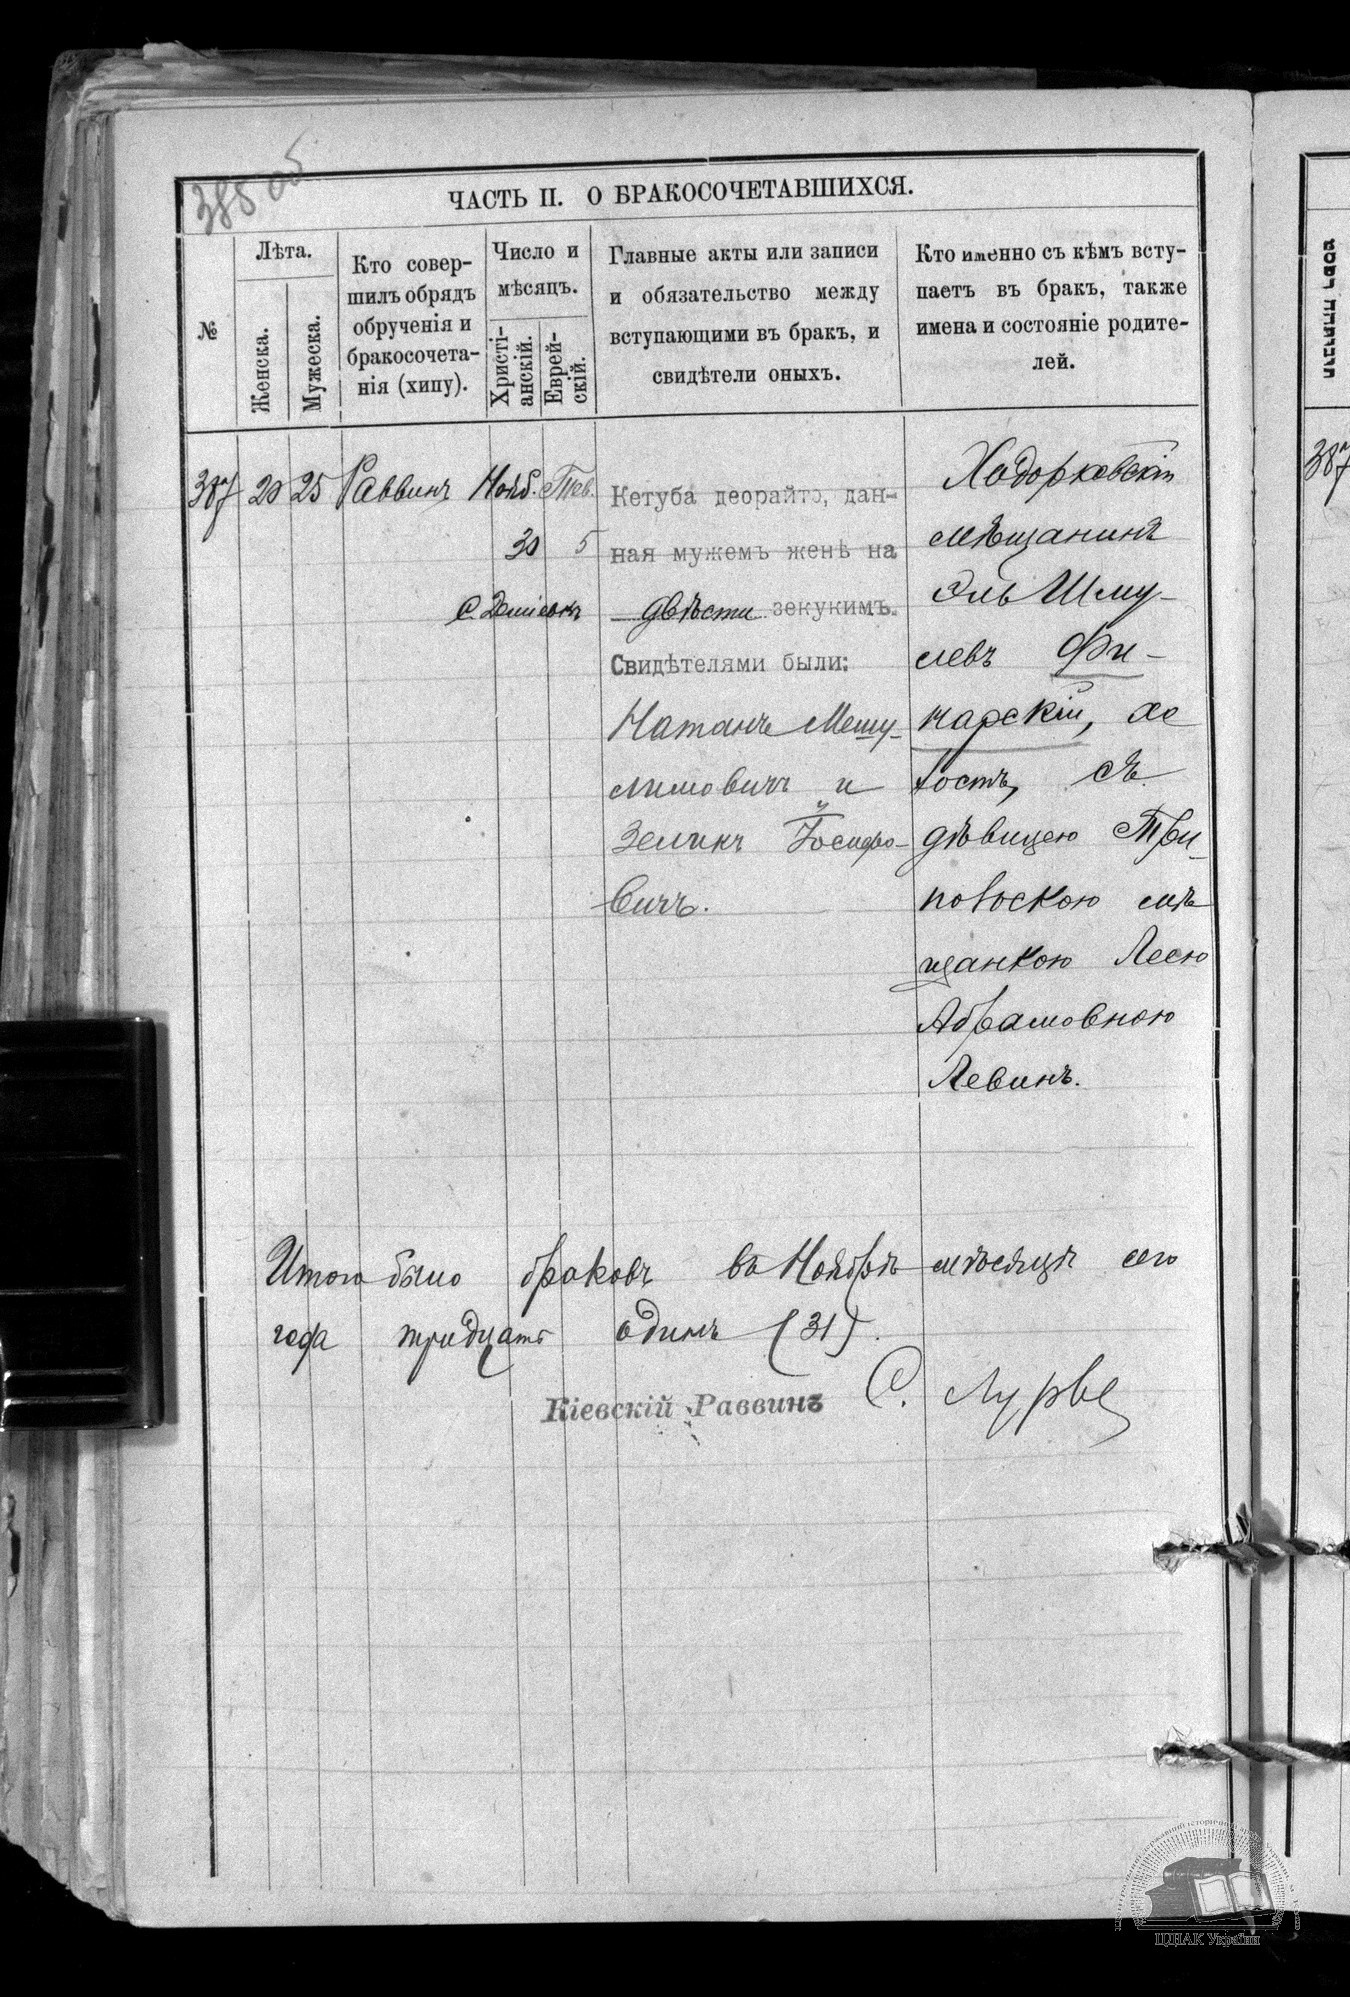 385 об
ЧАСТЬ II. О БРАКОСОЧЕТАВШИХСЯ.
№
Лѣта.
Женска.
Мужеска.
Кто совер-
шилъ обрядъ
обрученія и
бракосочета-
нія (хипу).
Число и
мѣсяцъ.
Христі-
анскій.
Еврей-
скій.
Главные акты или записи
и обязательство между
вступающими въ бракъ, и
свидѣтели оныхъ.
Кто именно съ кѣмъ всту-
паетъ въ бракъ, также
имена и состояніе родите-
лей.
387 20 25 Раввинъ Нояб. Тев.
30 5
С. Деміевкѣ
Кетуба деорайто, дан-
ная мужемъ женѣ на
двѣсти зекукимъ.
Свидѣтелями были:
Натанъ Мешу-
лимовичъ и
Зеликъ Іосифо-
вичъ.
Ходорковскій
мѣщанинъ
Эль Шму-
левъ Фи-
нарскій, хо
лостъ, съ
дѣвицею Три-
польскою мѣ
щанкою Леею
Абрамовною
Левинъ.
Итого было браковъ въ Ноябрѣ мѣсяцѣ сего
года тридцать одинъ (31).
Кіевскій Раввинъ С. Лурье
387
ЦДІАК України